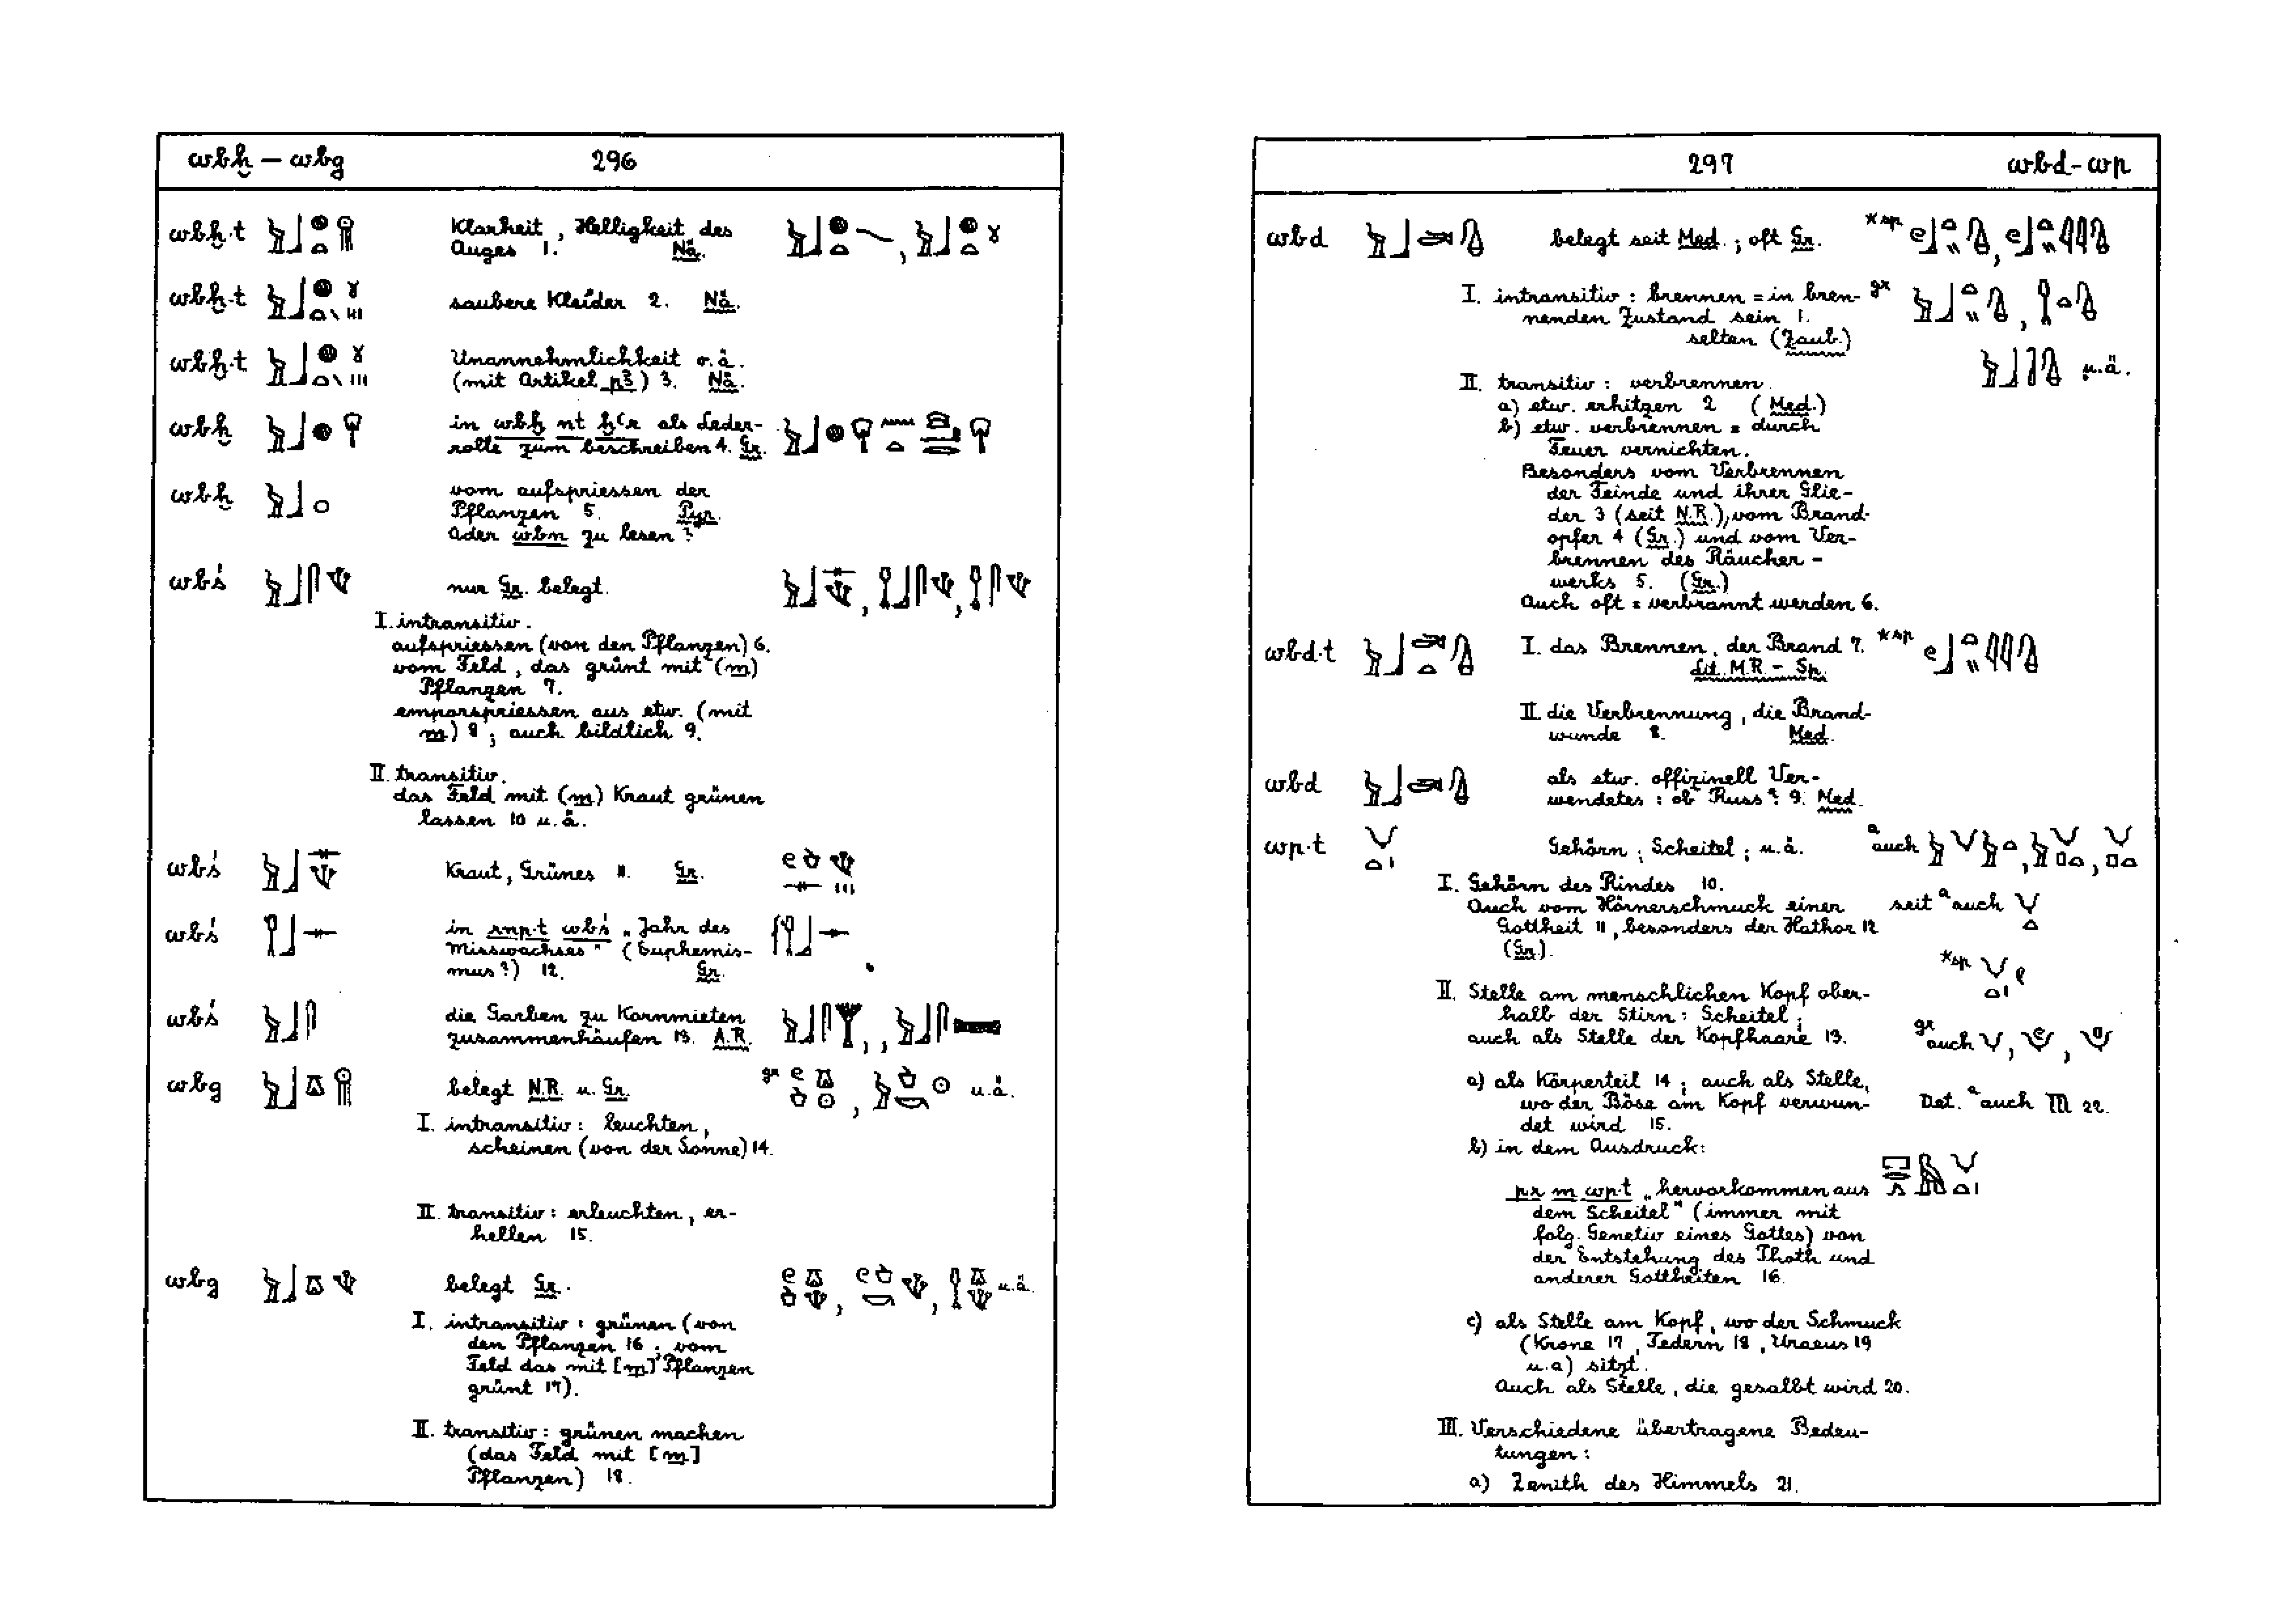 wbḫ – wbg 296
wbḫ·t Klarheit, Helligkeit des
Auges 1. Nä.
wbḫ·t saubere Kleider 2. Nä.
wbḫ·t Unannehmlichkeit o.ä.
(mit Artikel pꜣ) 3. Nä.
wbḫ in wbḫ nt ḫꜥr als Leder-
rolle zum beschreiben 4. Gr.
wbḫ vom aufspriessen der
Pflanzen 5. Pyr.
Oder wbn zu lesen?
wbś nur Gr. belegt.
I. intransitiv.
aufspriessen (von den Pflanzen) 6.
vom Feld, das grünt mit (m)
Pflanzen 7.
emporspriessen aus etw. (mit
m) 8; auch bildlich 9.
II. transitiv.
das Feld mit (m) Kraut grünen
lassen 10 u.ä.
wbś Kraut, Grünes 11. Gr.
wbś in rnp·t wbś „Jahr des
Misswachses" (Euphemis-
mus?) 12. Gr.
wbś die Garben zu Kornmieten
zusammenhäufen 13. A.R.
wbg belegt N.R. u. Gr. gr u.ä.
I. intransitiv: leuchten,
scheinen (von der Sonne) 14.
II. transitiv: erleuchten, er-
hellen 15.
wbg belegt Gr. u.ä.
I. intransitiv: grünen (von
den Pflanzen 16; vom
Feld das mit [m] Pflanzen
grünt 17).
II. transitiv: grünen machen
(das Feld mit [m]
Pflanzen) 18.
297 wbd – wp
wbd belegt seit Med.; oft Gr. *sp
I. intransitiv: brennen = in bren- gr
nenden Zustand sein 1.
selten (Zaub.)
u.ä.
II. transitiv: verbrennen.
a) etw. erhitzen 2 (Med.)
b) etw. verbrennen = durch
Feuer vernichten.
Besonders vom Verbrennen
der Feinde und ihrer Glie-
der 3 (seit N.R.), vom Brand-
opfer 4 (Gr.) und vom Ver-
brennen des Räucher-
werks 5. (Gr.)
Auch oft = verbrannt werden 6.
wbd·t I. das Brennen, der Brand 7. *sp
seit M.R. – Sp.
II. die Verbrennung, die Brand-
wunde 8. Med.
wbd als etw. offizinell Ver-
wendetes: ob Russ? 9. Med.
wp·t Gehörn; Scheitel; u.ä. a auch
I. Gehörn des Rindes 10.
Auch vom Hörnerschmuck einer seit a auch
Gottheit 11, besonders der Hathor 12
(Gr.).
*sp
II. Stelle am menschlichen Kopf ober-
halb der Stirn: Scheitel;
auch als Stelle der Kopfhaare 13. gr auch
a) als Körperteil 14; auch als Stelle,
wo der Böse am Kopf verwun- Det. a auch 22.
det wird 15.
b) in dem Ausdruck:
pr m wp·t „hervorkommen aus
dem Scheitel" (immer mit
folg. Genetiv eines Gottes) von
der Entstehung des Thoth und
anderer Gottheiten 16.
c) als Stelle am Kopf, wo der Schmuck
(Krone 17, Federn 18, Uraeus 19
u.a) sitzt.
Auch als Stelle, die gesalbt wird 20.
III. Verschiedene übertragene Bedeu-
tungen:
a) Zenith des Himmels 21.